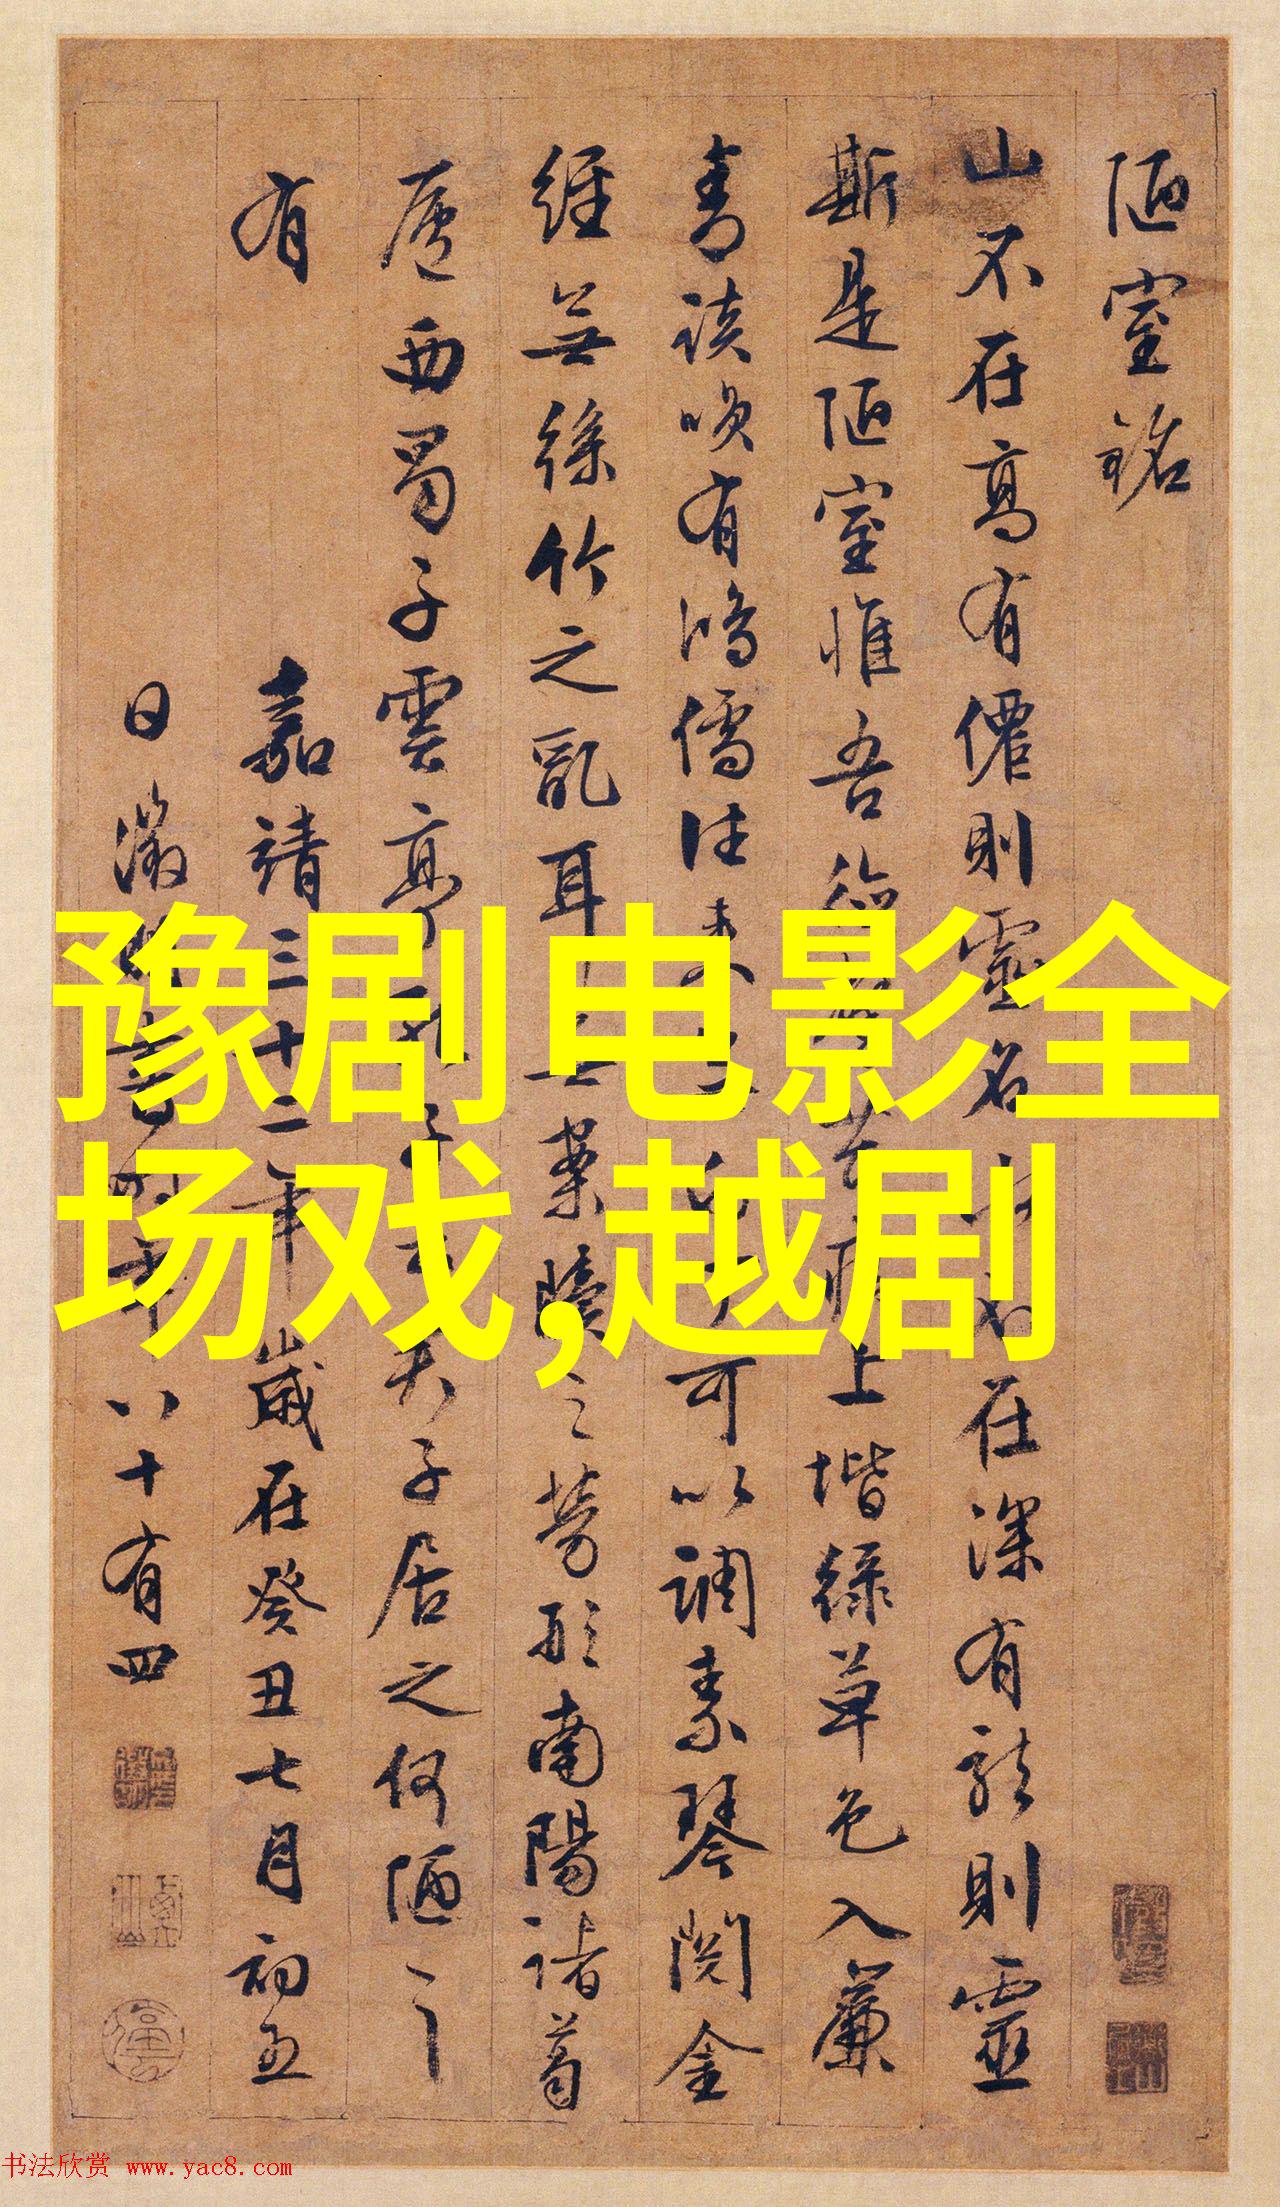 陋室銘
山不在高有僊則靈名水不在深有龍則靈
斯是陋室惟吾德馨苔痕上堦緑草色入簾
青談唉有鴻儒往来無白丁可以調素琴閱金
經無絲竹之亂耳無案牘之勞形南陽諸葛
廬西蜀子雲亭孔子云子居之何陋之
有
嘉靖三十二年歲在癸丑七月初五
日徵明書時年八十有四
豫剧电影全
场戏,越剧
书法欣赏 www.yac8.com